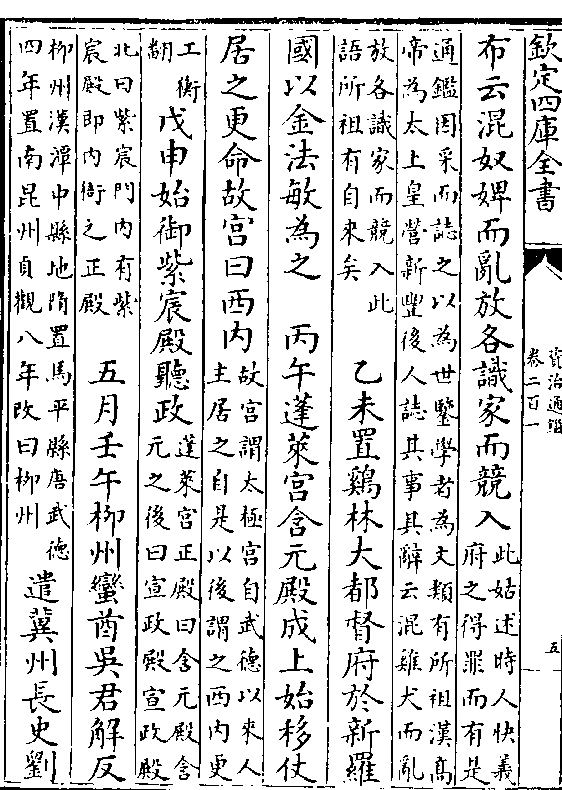 欽定四庫全書
資治通鑑
卷二百一
五
布云混奴婢而亂放各識家而競入
此姑述時人快義
府之得罪而有是
通鑑因采而誌之以為世鑒學者為文類有所祖漢高
帝為太上皇營新豐後人誌其事其辭云混雞犬而亂
放各識家而競入此
語所祖有自來矣
乙未置鷄林大都督府於新羅
國以金法敏為之　丙午蓬萊宮含元殿成上始移仗
居之更命故宮曰西内
故宮謂太極宮自武德以來人
主居之自是以後謂之西内更
工衡
翻
戊申始御紫宸殿聽政
蓬萊宮正殿曰含元殿含
元之後曰宣政殿宣政殿
北曰紫宸門内有紫
宸殿即内衙之正殿
五月壬午柳州蠻酋吳君解反
柳州漢潭中縣地隋置馬平縣唐武德
四年置南昆州貞觀八年改曰柳州
遣冀州長史劉